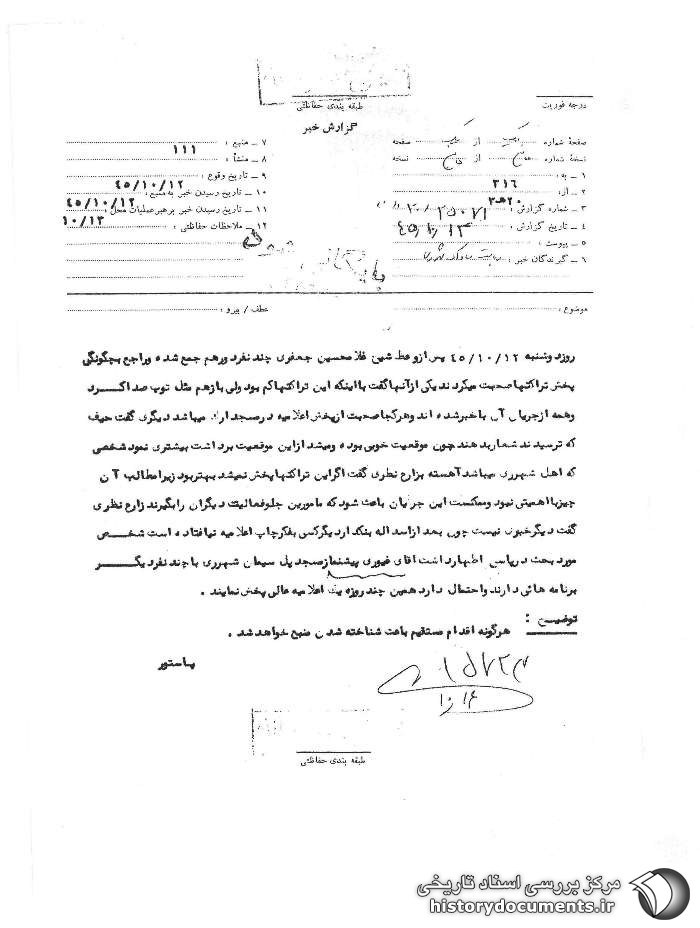 درجه فوریت
طبقه بندی حفاظتی
گزارش خبر
صفحهٔ شماره از صفحه
نسخهٔ شماره از نسخه
۱ - به : ۳۱۶
۲ - از : ۲۰ه۳
۳ - شماره گزارش : ۲۵۰۷۱
۴ - تاریخ گزارش : ۴۵/۱۰/۱۳
۵ - پیوست :
۶ - گیرندگان خبر :
۷ - منبع : ۱۱۱
۸ - منشأ :
۹ - تاریخ وقوع : ۴۵/۱۰/۱۲
۱۰ - تاریخ رسیدن خبر به منبع : ۴۵/۱۰/۱۲
۱۱ - تاریخ رسیدن خبر برهبر عملیات محل : ۱۰/۱۳
۱۲ - ملاحظات حفاظتی :
موضوع :
عطف / پیرو :
روزدوشنبه ۴۵/۱۰/۱۲ پس ازوعظ شیخ غلامحسین جعفری چند نفردورهم جمع شده وراجع بچگونگی
پخش تراکتهاصحبت میکردند یکی ازآنهاگفت بااینکه این تراکتهاکم بود ولی بازهم مثل توپ صداکرد
وهمه ازجریان آن باخبرشده اند وهرکجاصحبت ازپخش اعلامیه درمسجدارک میباشد دیگری گفت حیف
که ترسیدند شعاربدهندچون موقعیت خوبی بوده ومیشد ازاین موقعیت برداشت بیشتری نمود شخصی
که اهل شهرری میباشد آهسته بزارع نظری گفت اگراین تراکتهاپخش نمیشد بهتربود زیرامطالب آن
چیزبااهمیتی نبود وممکنست این جریان باعث شود که مامورین جلوفعالیت دیگران رابگیرند زارع نظری
گفت دیگرخبری نیست چون بعد ازاسد اله بنکدار دیگرکسی بفکرچاپ اعلامیه نیافتاده است شخص
مورد بحث درپاسخ اظهارداشت آقای غیوری پیشنمازمسجد پل سیمان شهرری باچند نفردیگر
برنامه هائی دارند واحتمال دارد همین چند روزه یک اعلامیه عالی پخش نمایند .
توضیح : هرگونه اقدام مستقیم باعث شناخته شدن منبع خواهد شد .
پاستور
طبقه بندی حفاظتی
مرکز بررسی اسناد تاریخی
historydocuments.ir